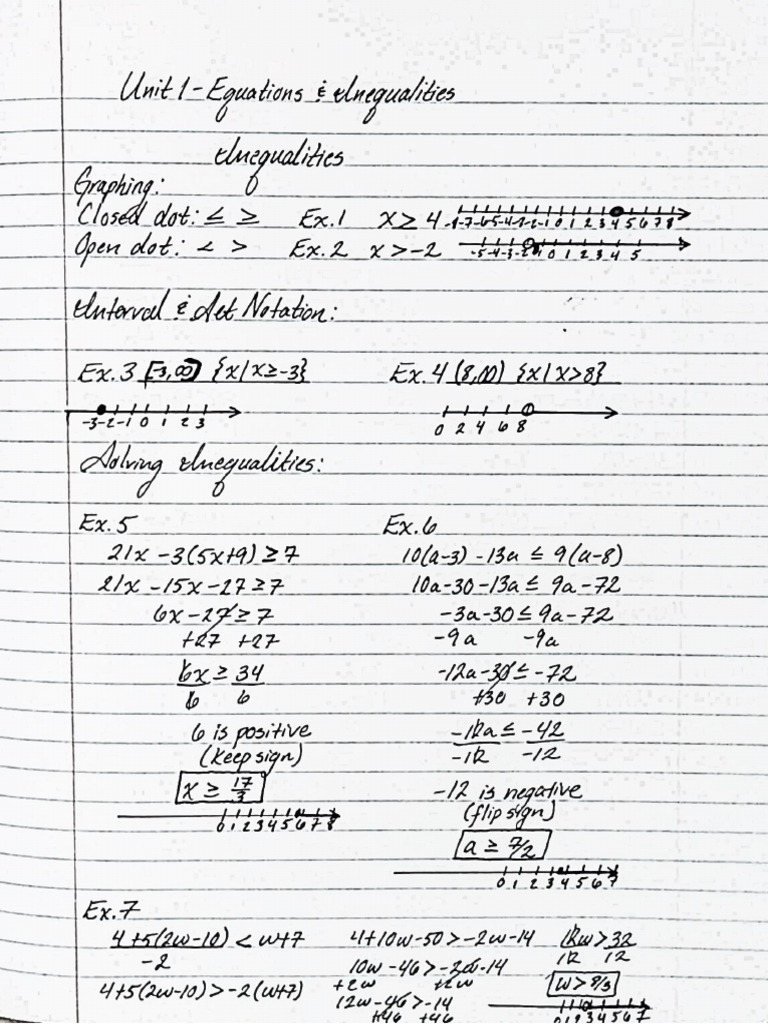 Unit 1 - Equations & Inequalities
Inequalities
Graphing:
Closed dot: ≤ ≥ Ex. 1 x ≥ 4
-8 -7 -6 -5 -4 -3 -2 -1 0 1 2 3 4 5 6 7 8
Open dot: < > Ex. 2 x > -2
-5 -4 -3 -2 -1 0 1 2 3 4 5
Interval & Set Notation:
Ex. 3 [-3,∞) {x|x≥-3}
-3 -2 -1 0 1 2 3
Ex. 4 (8,∞) {x|x>8}
0 2 4 6 8
Solving Inequalities:
Ex. 5
21x - 3(5x+9) ≥ 7
21x - 15x - 27 ≥ 7
6x - 27 ≥ 7
+27 +27
6x ≥ 34
6 6
6 is positive
(keep sign)
x ≥ 17/3
0 1 2 3 4 5 6 7 8
Ex. 6
10(a-3) - 13a ≤ 9(a-8)
10a - 30 - 13a ≤ 9a - 72
-3a - 30 ≤ 9a - 72
-9a -9a
-12a - 30 ≤ -72
+30 +30
-12a ≤ -42
-12 -12
-12 is negative
(flip sign)
a ≥ 7/2
0 1 2 3 4 5 6 7
Ex. 7
4+5(2w-10) < w+7
-2
4+5(2w-10) > -2(w+7)
4+10w-50 > -2w-14
10w-46 > -2w-14
+2w +2w
12w-46 > -14
+46 +46
12w > 32
12 12
w > 8/3
0 1 2 3 4 5 6 7